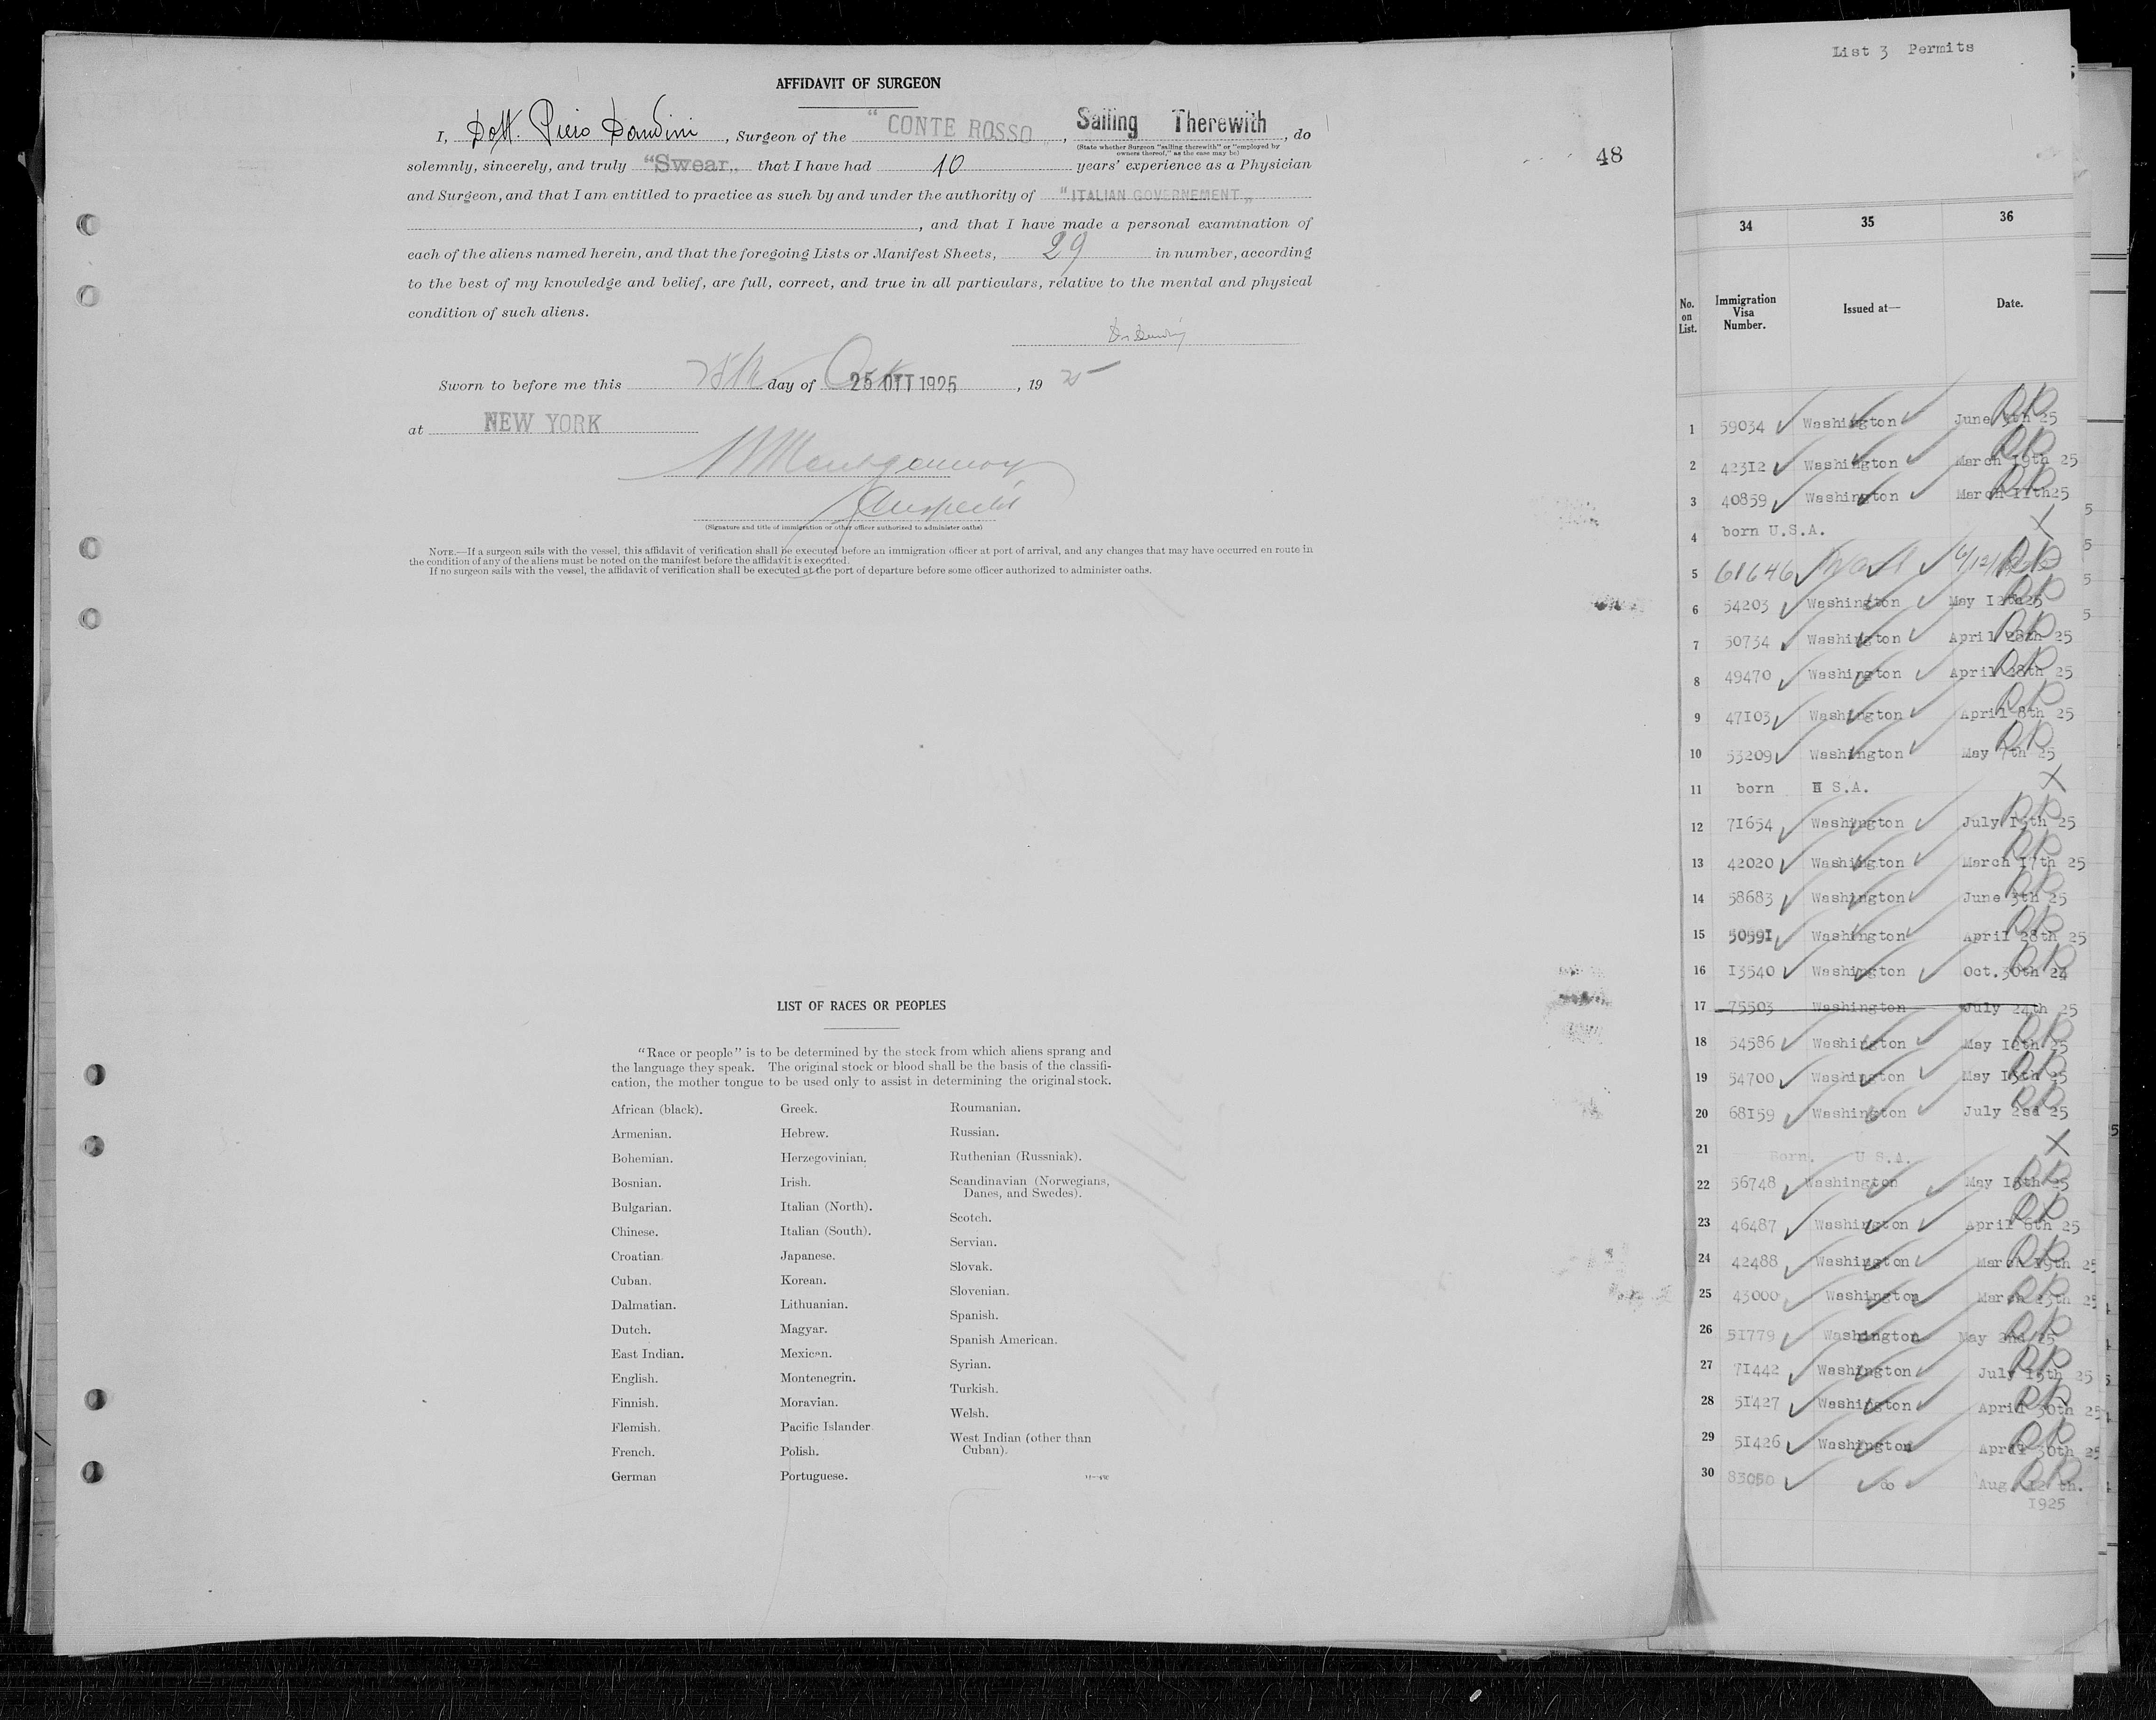 AFFIDAVIT OF SURGEON
I, Dott. Piero Dandini, Surgeon of the "CONTE ROSSO", Sailing Therewith, do
(State whether Surgeon "sailing therewith" or "employed by
owners thereof," as the case may be)
solemnly, sincerely, and truly "Swear„ that I have had 10 years' experience as a Physician
and Surgeon, and that I am entitled to practice as such by and under the authority of "ITALIAN GOVERNEMENT„
, and that I have made a personal examination of
each of the aliens named herein, and that the foregoing Lists or Manifest Sheets, 29 in number, according
to the best of my knowledge and belief, are full, correct, and true in all particulars, relative to the mental and physical
condition of such aliens.
Sworn to before me this day of 25 OTT 1925, 19 25
at NEW YORK
Montgomery
Inspector
(Signature and title of immigration or other officer authorized to administer oaths)
NOTE.—If a surgeon sails with the vessel, this affidavit of verification shall be executed before an immigration officer at port of arrival, and any changes that may have occurred en route in
the condition of any of the aliens must be noted on the manifest before the affidavit is executed.
If no surgeon sails with the vessel, the affidavit of verification shall be executed at the port of departure before some officer authorized to administer oaths.
48
LIST OF RACES OR PEOPLES
"Race or people" is to be determined by the stock from which aliens sprang and
the language they speak. The original stock or blood shall be the basis of the classifi-
cation, the mother tongue to be used only to assist in determining the original stock.
African (black).
Armenian.
Bohemian.
Bosnian.
Bulgarian.
Chinese.
Croatian.
Cuban.
Dalmatian.
Dutch.
East Indian.
English.
Finnish.
Flemish.
French.
German
Greek.
Hebrew.
Herzegovinian.
Irish.
Italian (North).
Italian (South).
Japanese.
Korean.
Lithuanian.
Magyar.
Mexican.
Montenegrin.
Moravian.
Pacific Islander.
Polish.
Portuguese.
Roumanian.
Russian.
Ruthenian (Russniak).
Scandinavian (Norwegians,
Danes, and Swedes).
Scotch.
Servian.
Slovak.
Slovenian.
Spanish.
Spanish American.
Syrian.
Turkish.
Welsh.
West Indian (other than
Cuban).
List 3 Permits
34 35 36
No. on List. Immigration Visa Number. Issued at— Date.
1 59034 Washington June 25
2 42312 Washington March 19th 25
3 40859 Washington March 11th25
4 born U.S.A. X
5 61646 Wash 6/12/
6 54203 Washington May 12th25
7 50734 Washington April 28th 25
8 49470 Washington April 28th 25
9 47103 Washington April 8th 25
10 53209 Washington May 7th 25
11 born U S.A. X
12 71654 Washington July 15th 25
13 42020 Washington March 17th 25
14 58683 Washington June 3th 25
15 50591 Washington April 28th 25
16 13540 Washington Oct.30th 24
17 75503 Washington July 24th 25
18 54586 Washington May 25
19 54700 Washington May 15th 25
20 68159 Washington July 2sd 25
21 Born. U S.A. X
22 56748 Washington May 25
23 46487 Washington April 8th 25
24 42488 Washington March 19th 25
25 43000 Washington March 23th 25
26 51779 Washington May 2nd 25
27 71442 Washington July 15th 25
28 51427 Washington April 30th 25
29 51426 Washington April 30th 25
30 83050 Aug. 12 th.
1925